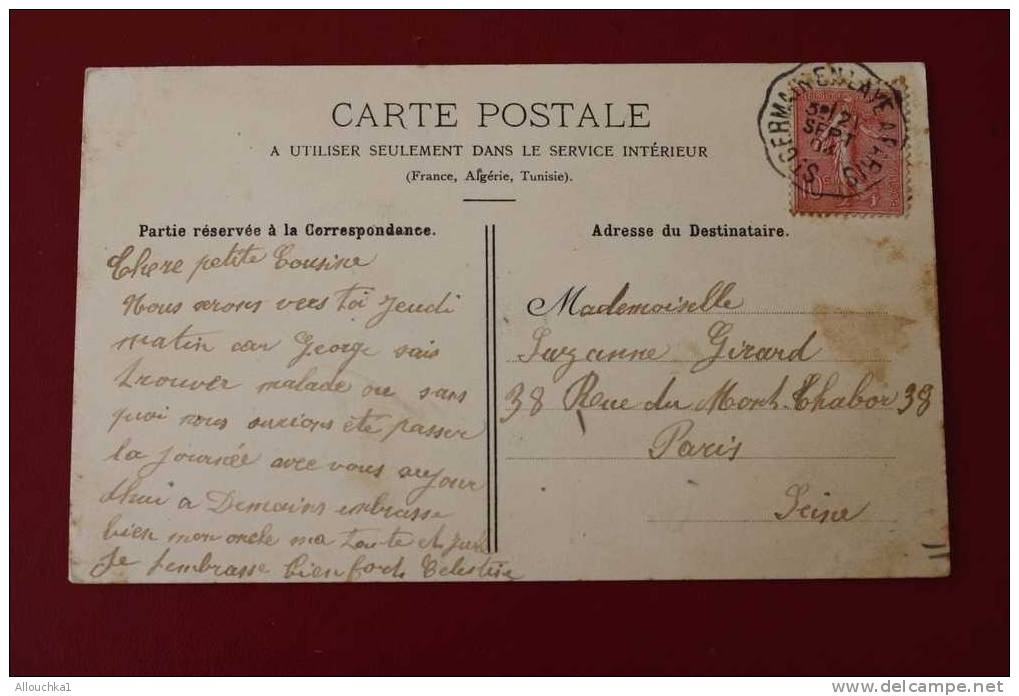 CARTE POSTALE
A UTILISER SEULEMENT DANS LE SERVICE INTÉRIEUR
(France, Algérie, Tunisie).
ST GERMAIN EN LAYE A PARIS
21
SEPT
04
Partie réservée à la Correspondance.
Chere petite Cousine
Nous serons vers toi Jeudi
matin car George sais
trouver malade ou sans
quoi nous aurions été passer
la journée avec vous aujour
dhui a Demains embrasse
bien mon oncle ma tante et
Je tembrasse bien fort Celestine
Adresse du Destinataire.
Mademoiselle
Suzanne Girard
38 Rue du Mont-Thabor 38
Paris
Seine
Allouchka1
delcampe.net